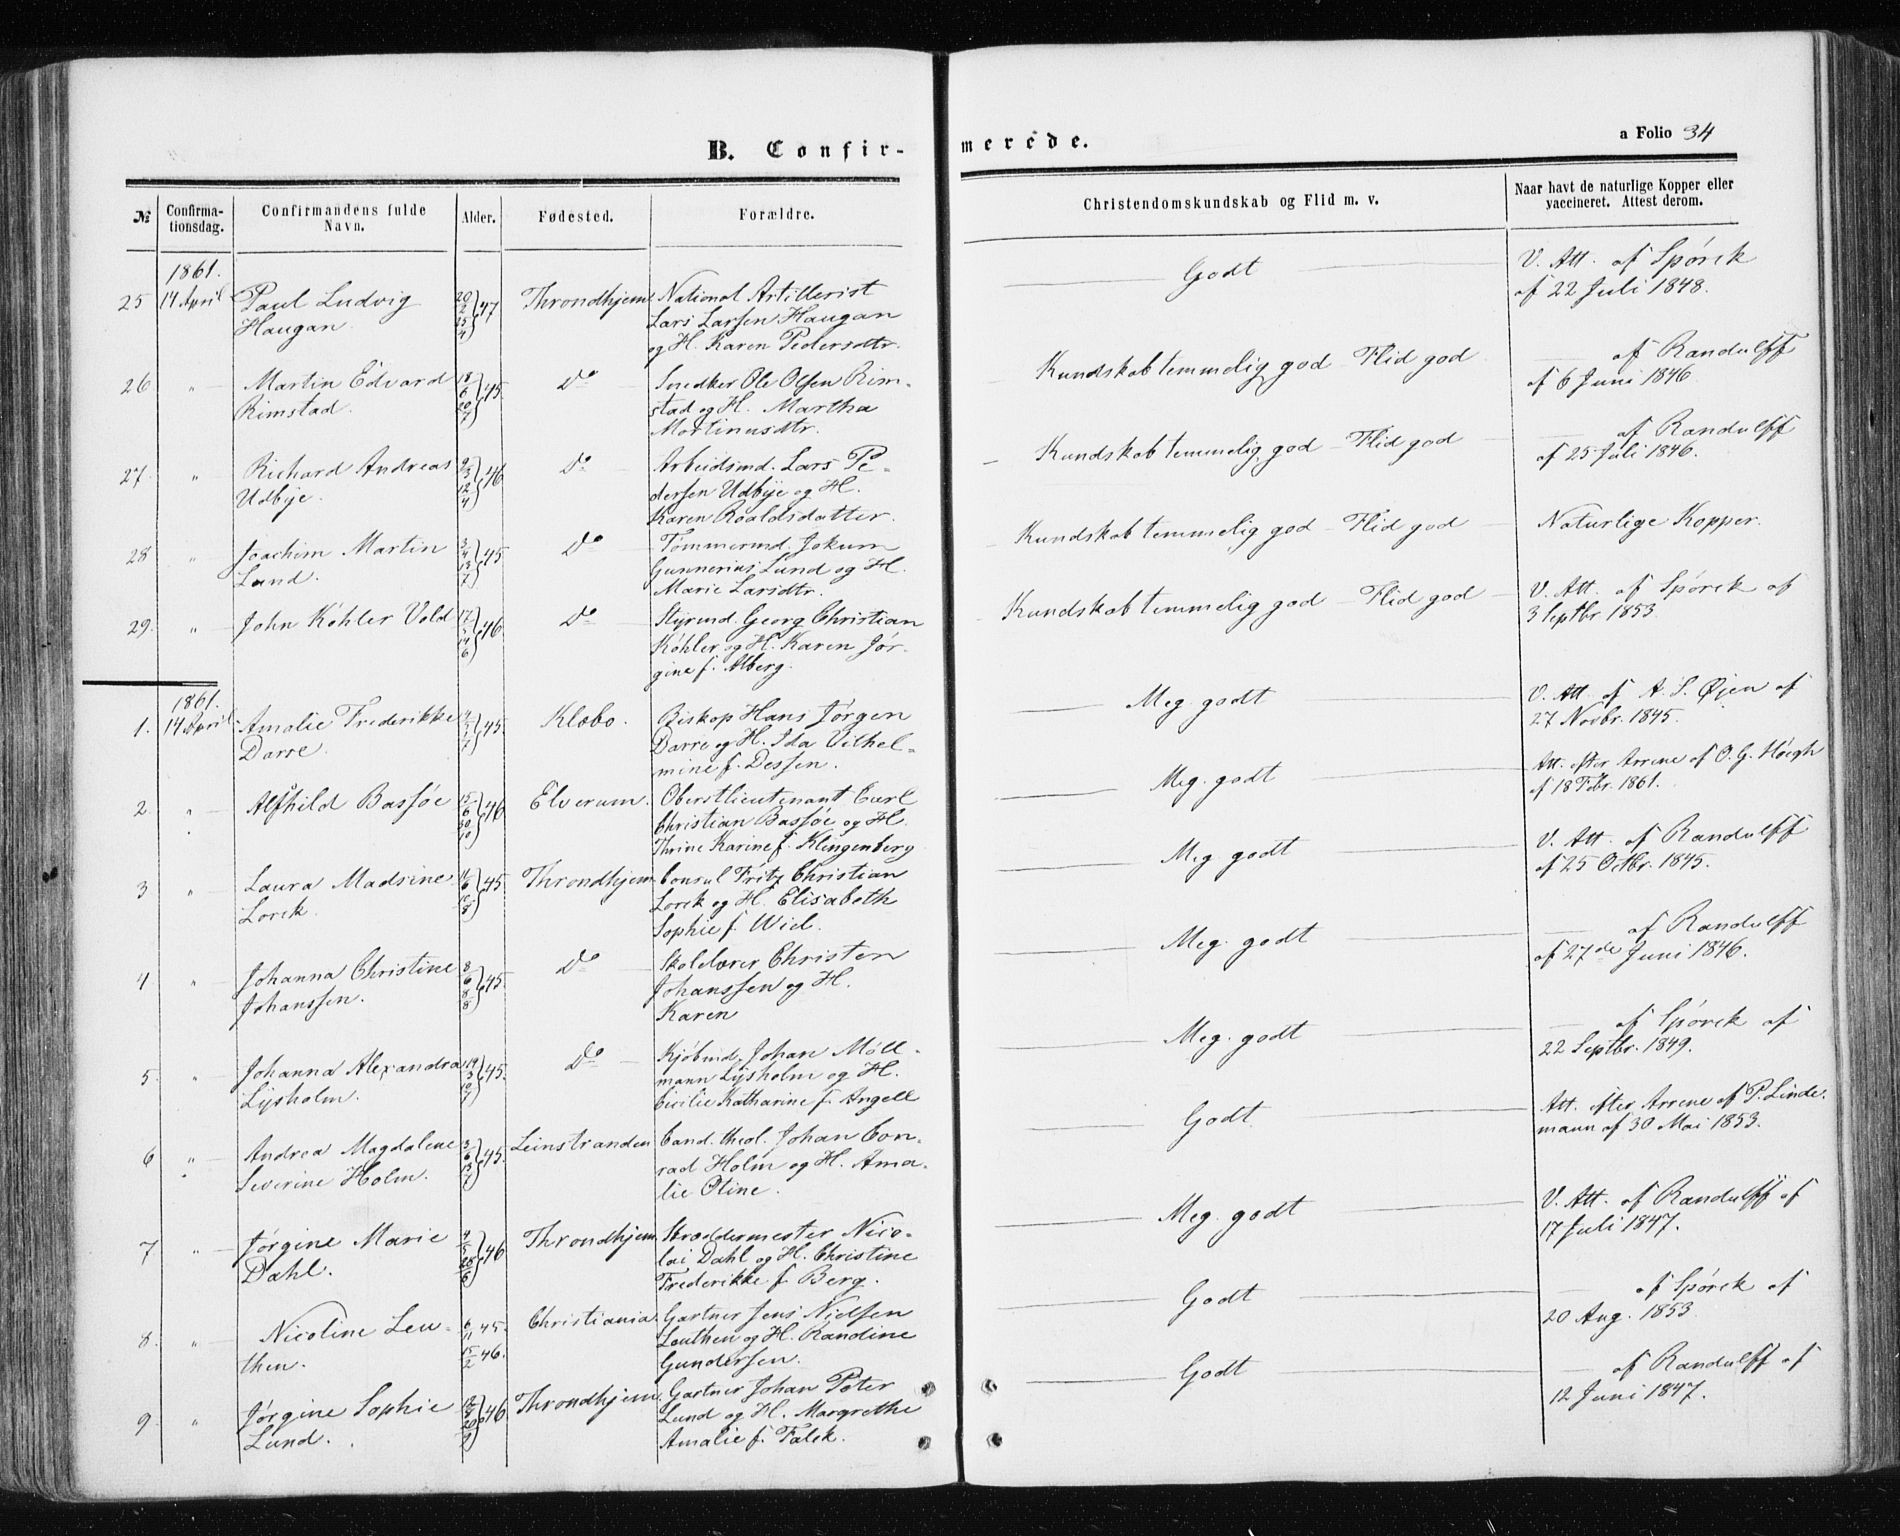 B. Confirmerede.
a Folio 34
№
Confirma-
tionsdag.
Confirmandens fulde
Navn.
Alder.
Fødested.
Forældre.
Christendomskundskab og Flid m. v.
Naar havt de naturlige Kopper eller
vaccineret. Attest derom.
1861.
25 14 April Paul Ludvig 47 Throndhjem National Artillerist Godt V. Att. af Spørck
Haugan. Lars Larsen Haugan af 22 Juli 1848.
og H. Karen Pedersdtr.
26 " Martin Edvard 18/6 20/7 45. Do Snedker Ole Olsen Rim- Kundskab temmelig god - Flid god — af Randulff
Rimstad. stad og H. Martha af 6 Juni 1846.
Martinusdtr.
27 " Richard Andreas 9/3 12/4 46 Do Arbeidsmd. Lars Pe- Kundskab temmelig god - Flid god — af Randulff
Udbye. dersen Udbye og H. af 25 Juli 1846.
Karen Roaldsdatter.
28 " Joachim Martin 3/4 13/7 45 Do Tømmermd. Jokum Kundskab temmelig god - Flid god Naturlige Kopper.
Lund. Gunnerius Lund og H.
Marie Larsdtr.
29. " John Köhler Vold 46 Do Styrmd. Georg Christian Kundskab temmelig god - Flid god V. Att. af Spørck af
Köhler og H. Karen Jør- 3 Septbr. 1853.
gine f. Alberg.
1861.
1. 14 April Amalie Frederikke 45. Klæbo. Biskop Hans Jørgen Meg. godt V. Att. af A. S. Øjen af
Darre. Darre og H. Ida Vilhel- 27 Novbr. 1845.
mine f. Dessen.
2 " Alfhild Bassøe 15/6 30/10 46 Elverum. Oberstlieutenant Carl Meg. godt Att. efter Arrene af O. G. Høegh
Christian Bassøe og H. af 18 Febr. 1861.
Thrine Karine f. Klingenberg
3 " Laura Madsine 45 Throndhjem Consul Fritz Christian Meg. godt V. Att. af Randulff
Lorck. Lorck og H. Elisabeth af 25 Octbr. 1845.
Sophie f. Wid.
4 " Johanna Christine 8/6 8/8 45. Do Skolelærer Christen Meg. godt — af Randulff
Johanssen. Johanssen og H. af 27de Juni 1846.
Karen
5 " Johanna Alexandra 45. Do Kjøbmd. Johan Möll- Meg. godt — af Spørck af
Lysholm. mann Lysholm og H. 22 Septbr. 1849.
Cicilie Katharine f. Angell
6 " Andrea Magdalene 3/6 13/7 45. Leinstranden Cand. theol. Johan Con- Godt Att. efter Arrene af P. Linde-
Severine Holm. rad Holm og H. Ama- mann af 30 Mai 1853.
lie Oline.
7 " Jørgine Marie 4/5 28/6 46 Throndhjem Skræddermester Nico- Meg. godt V. Att. af Randulff af
Dahl. lai Dahl og H. Christine 17 Juli 1847.
Frederikke f. Berg.
8. " Nicoline Leu- 6/11 45. Christiania. Gartner Jens Nielsen Godt — af Spørck af
then. 15/2 46. Leuthen og H. Randine 20 Aug. 1853.
Gundersen.
9. " Jørgine Sophie 46 Throndhjem. Gartner Johan Peter Godt — af Randulff af
Lund. Lund og H. Margrethe 12 Juni 1847.
Amalie f. Falck.